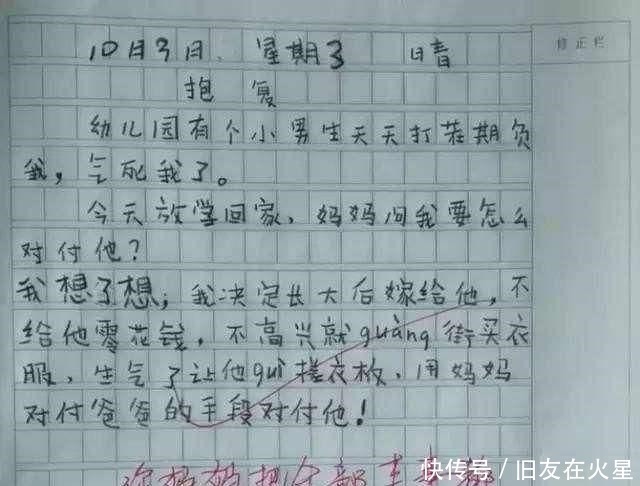 修正栏
10月3日. 星期3 日晴
抱复
幼儿园有个小男生天天打茬期负
我,气死我了。
今天放学回家,妈妈问我要怎么
对付他?
我想了想,我决定长大后嫁给他,不
给他零花钱,不高兴就guàng街买衣
服,生气了让他guì搓衣板,用妈妈
对付爸爸的手段对付他!
快传号/旧友在火星